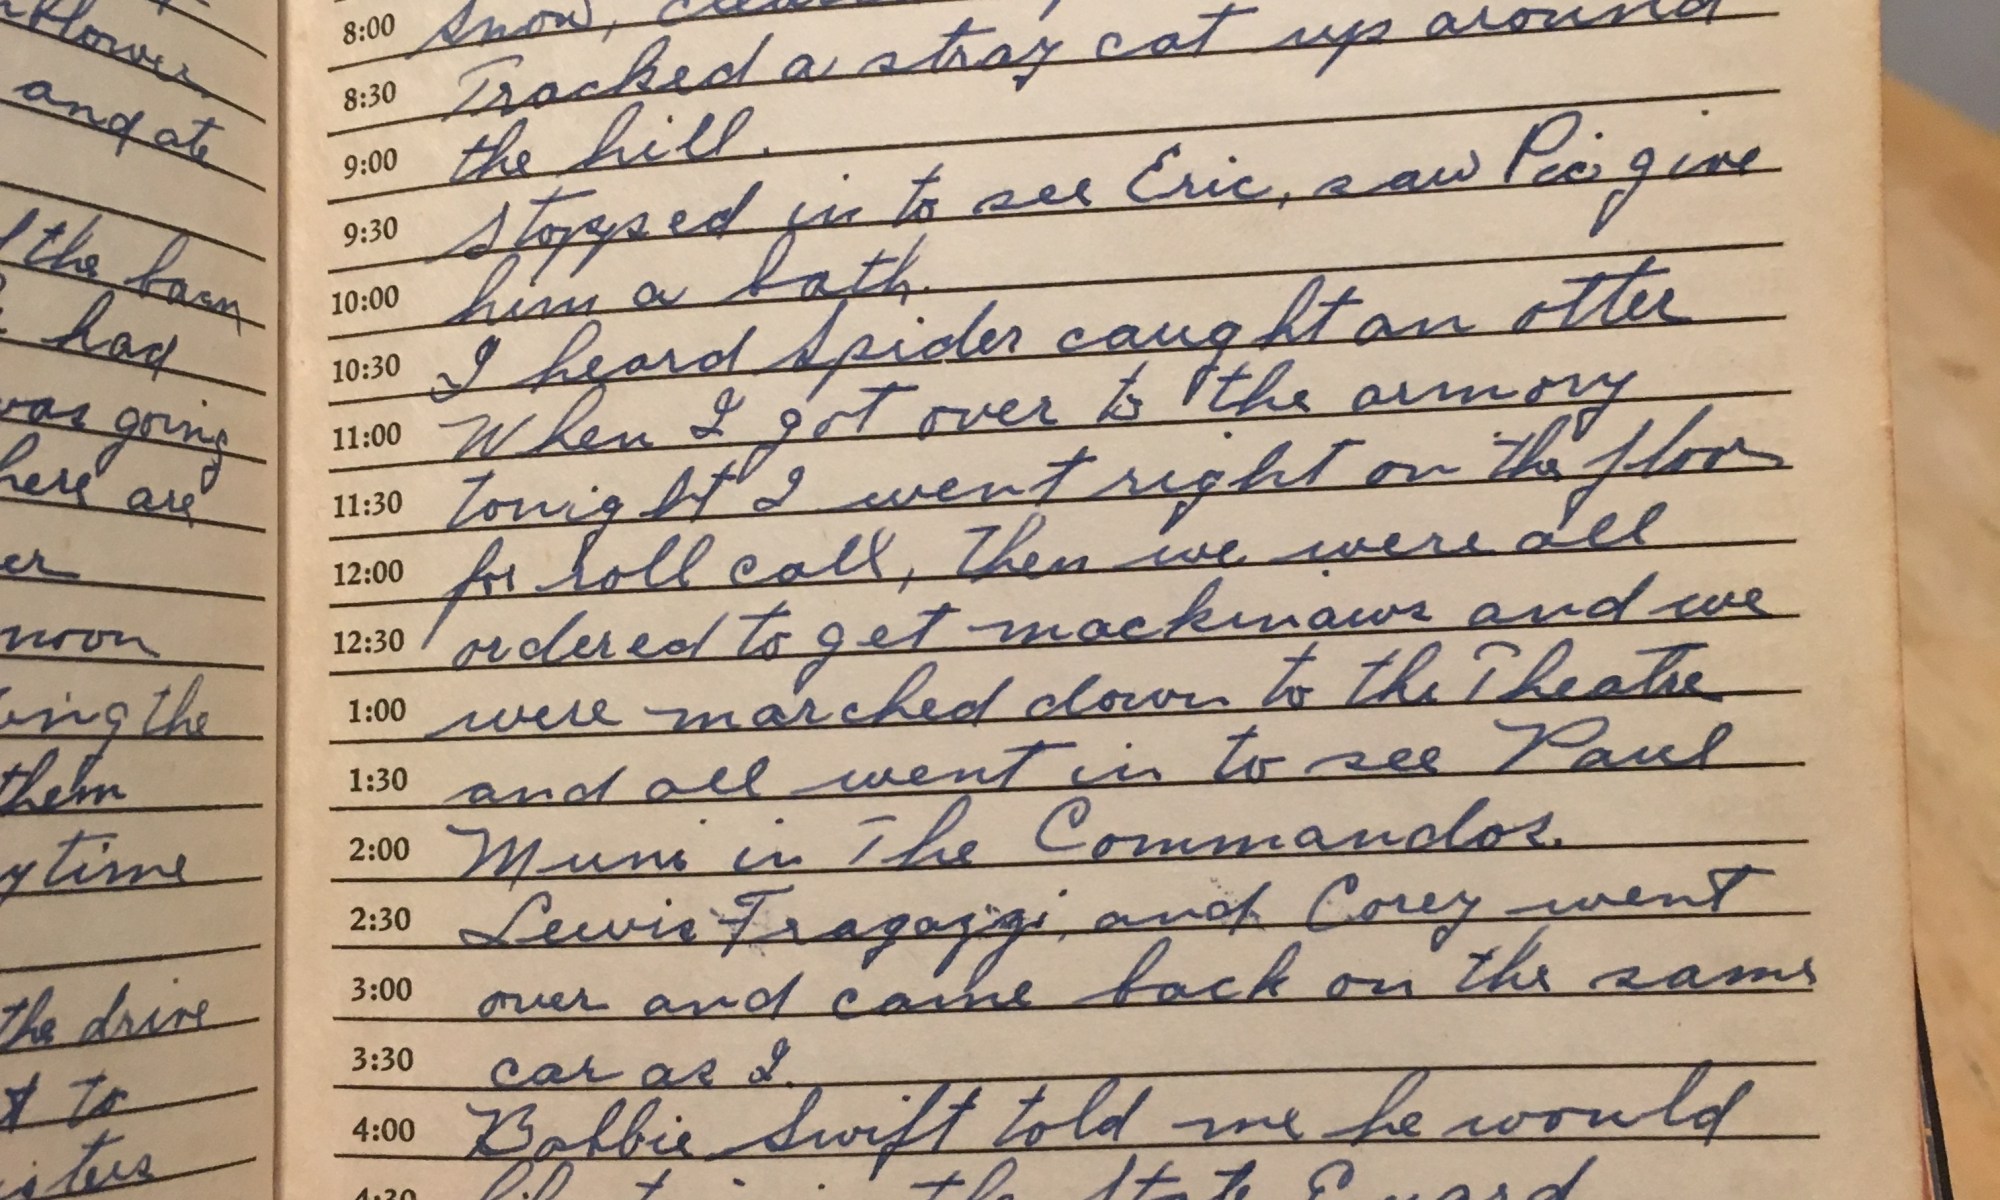 flower
and ate
the barn
had
was going
here are
er
noon
ing the
them
time
the drive
to
8:00 Snow,
8:30 Tracked a stray cat up around
9:00 the hill.
9:30 Stopped in to see Eric, saw Pic give
10:00 him a bath.
10:30 I heard Spider caught an otter
11:00 When I got over to the armory
11:30 tonight I went right on the floor
12:00 for roll call, then we were all
12:30 ordered to get mackinaws and we
1:00 were marched down to the Theatre
1:30 and all went in to see Paul
2:00 Muni in The Commandos.
2:30 Lewis Fragazzi, and Corey went
3:00 over and came back on the same
3:30 car as I.
4:00 Bobbie Swift told me he would
4:30 the State Guard